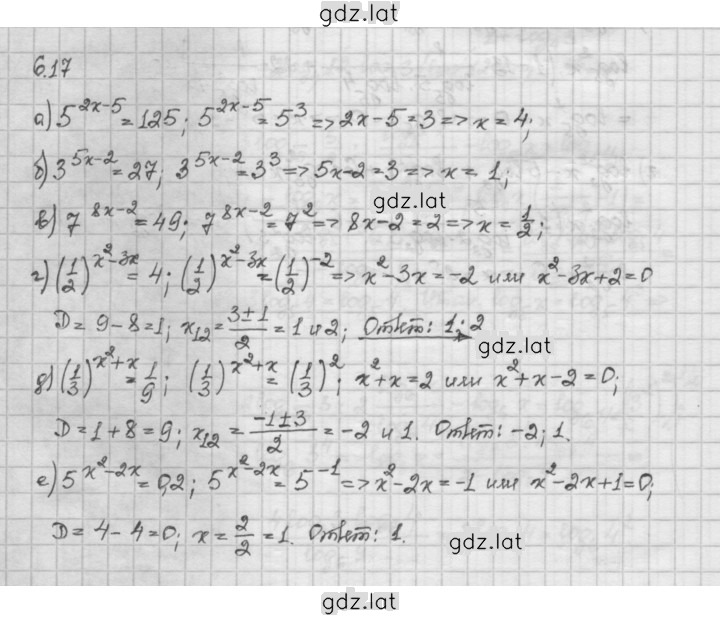 gdz.lat
6.17
а) 5^(2x-5) = 125; 5^(2x-5) = 5^3 => 2x-5 = 3 => x = 4;
б) 3^(5x-2) = 27; 3^(5x-2) = 3^3 => 5x-2 = 3 => x = 1;
gdz.lat
в) 7^(8x-2) = 49; 7^(8x-2) = 7^2 => 8x-2 = 2 => x = 1/2;
г) (1/2)^(x^2-3x) = 4; (1/2)^(x^2-3x) = (1/2)^(-2) => x^2-3x = -2 или x^2-3x+2=0
D = 9-8=1; x_12 = (3±1)/2 = 1 и 2; Ответ: 1; 2
д) (1/3)^(x^2+x) = 1/9; (1/3)^(x^2+x) = (1/3)^2; x^2+x=2 или x^2+x-2=0;
D=1+8=9; x_12 = (-1±3)/2 = -2 и 1. Ответ: -2; 1.
е) 5^(x^2-2x) = 0,2; 5^(x^2-2x) = 5^(-1) => x^2-2x=-1 или x^2-2x+1=0;
D = 4-4=0; x = 2/2 = 1. Ответ: 1.
gdz.lat
gdz.lat